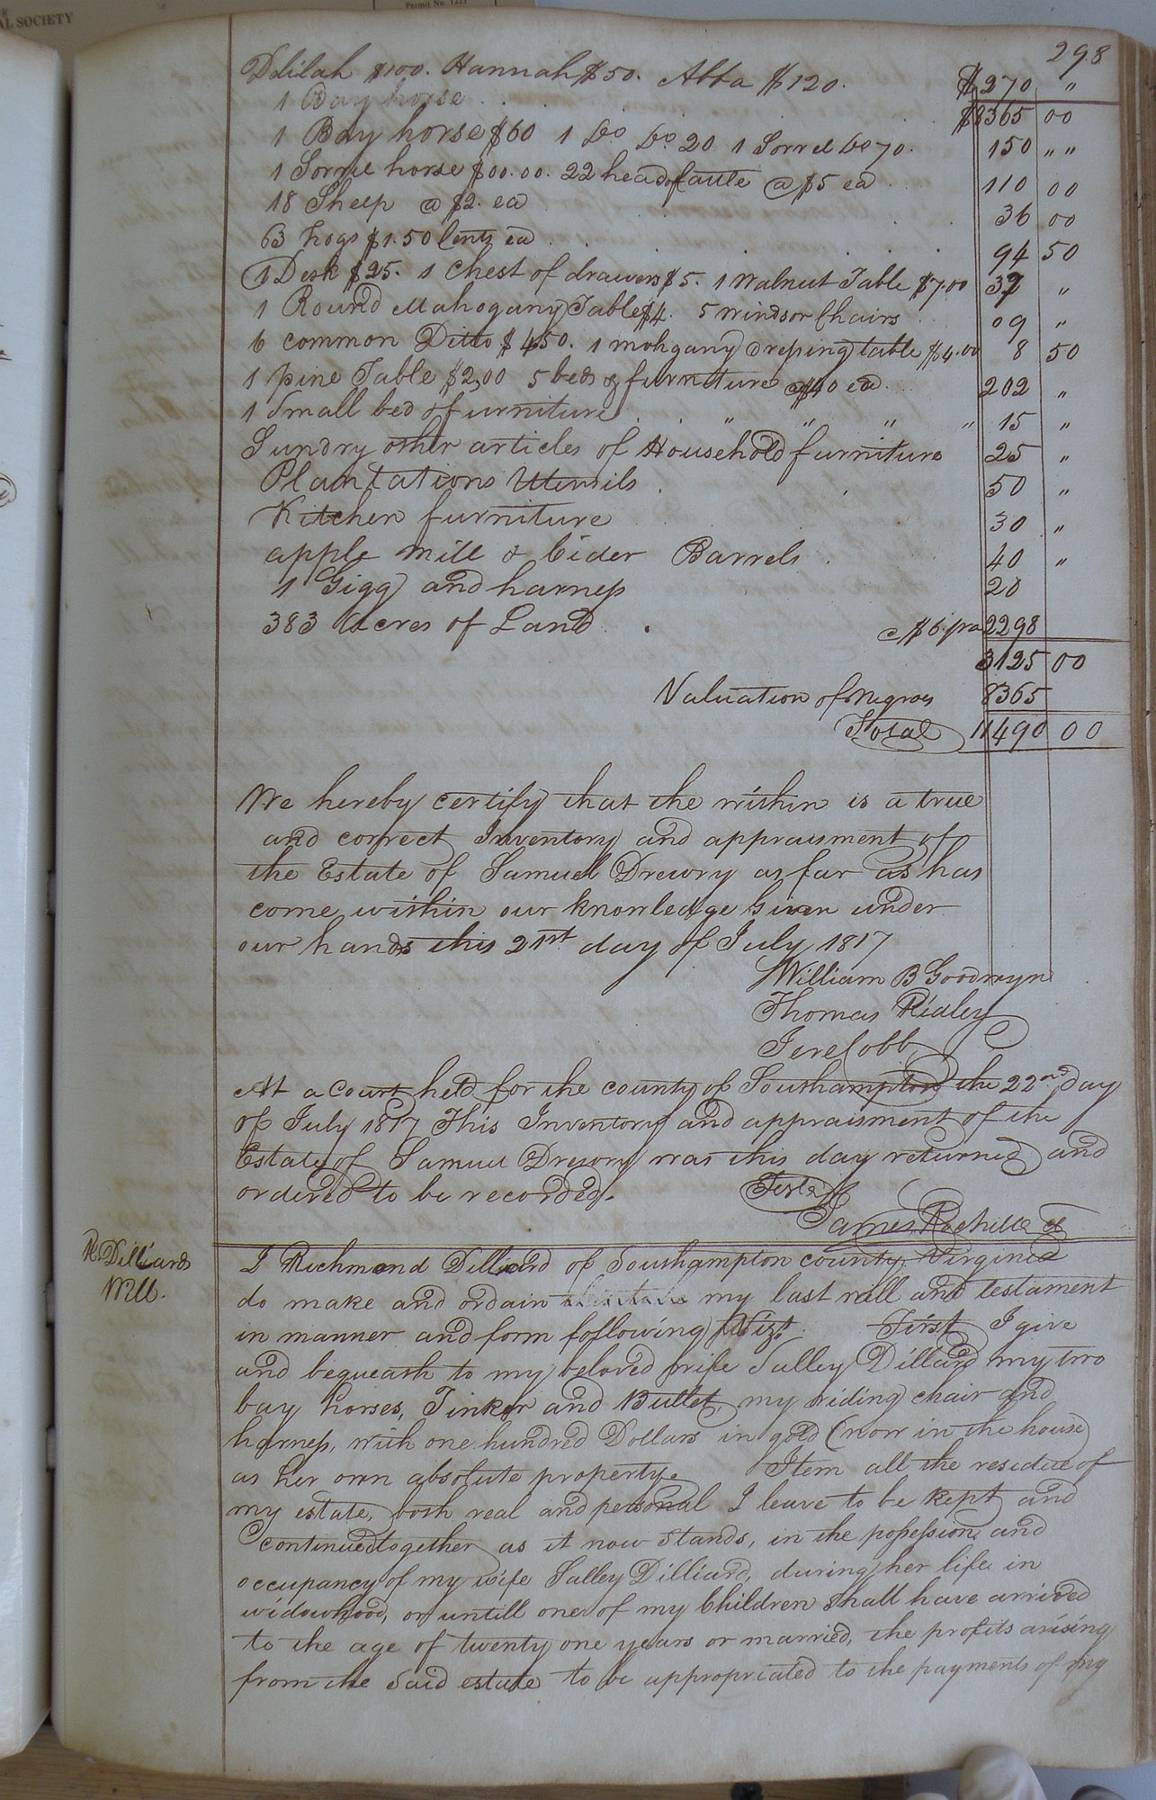 AL SOCIETY
Permit No. 1221
298
Delilah $100. Hannah $50. Abba $120. $270 "
1 Bay horse $8365 00
1 Bay horse $60 1 Do Do 20 1 Sorrel Do 70. 150 " "
1 Sorrel horse $00.00. 22 head of cattle @ $5 ea 110 00
18 Sheep @ $2. ea 36 00
63 hogs $1.50 Cents ea 94 50
1 Desk $25. 1 Chest of drawers $5. 1 Walnut Table $7.00 37 "
1 Round Mahogany Table $4. 5 Windsor Chairs 09 "
6 common Ditto $4.50. 1 mohgany dressing table $4.00 8 50
1 pine Table $2,00 5 beds & furniture @ $40 ea 202 "
1 Small bed & furniture " " " " 15 "
Sundry other articles of Household furniture 25 "
Plantations Utensils 50 "
Kitchen furniture 30 "
apple mill & Cider Barrels 40 "
1 Gigg and harness 20
383 Acres of Land @ $6. pra 2298
3125 00
Valuation of Negroes 8365
Total 11490 00
We hereby certify that the within is a true
and correct Inventory and appraisment of
the Estate of Samuel Drewry as far as has
come within our knowledge Given under
our hands this 21st day of July 1817
William B Goodwyn
Thomas Ridley
Jere Cobb
At a Court held for the county of Southampton the 22nd day
of July 1817 This Inventory and appraisment of the
Estate of Samuel Drewry was this day returned and
ordered to be recorded.
Teste
James Rochelle
R. Dilliards
Will.
I Richmond Dilliard of Southampton county, Virginia
do make and ordain my last will and testament
in manner and form following Vizt. First I give
and bequeath to my beloved wife Salley Dillard my two
bay horses, Tinker and Bullet, my riding chair and
harness, with one hundred Dollars in gold (now in the house)
as her own absolute property. Item all the residue of
my estate, both real and personal I leave to be kept and
continued together as it now stands, in the possession and
occupancy of my wife Salley Dilliard, during her life in
widowhood, or untill one of my Children shall have arrived
to the age of twenty one years or married, the profits arising
from the said estate to be appropriated to the payments of my